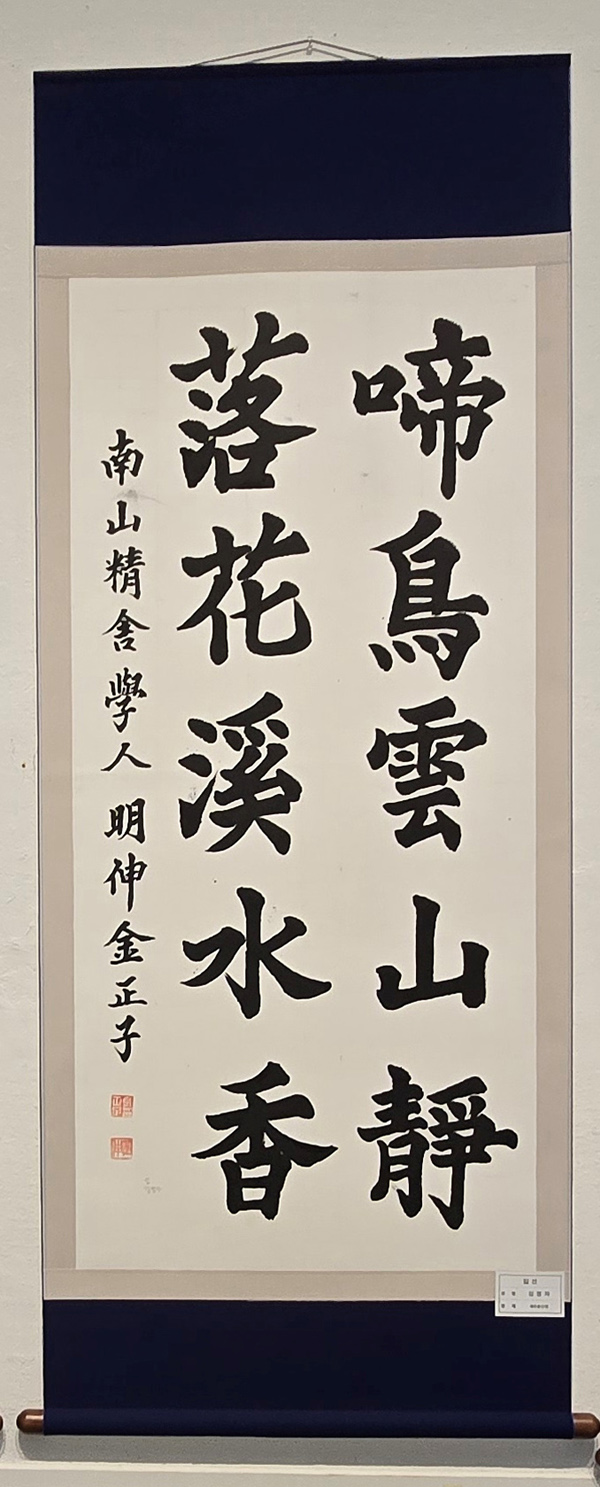 啼鳥雲山靜
落花溪水香
南山精舍學人 明伸金正子
입선